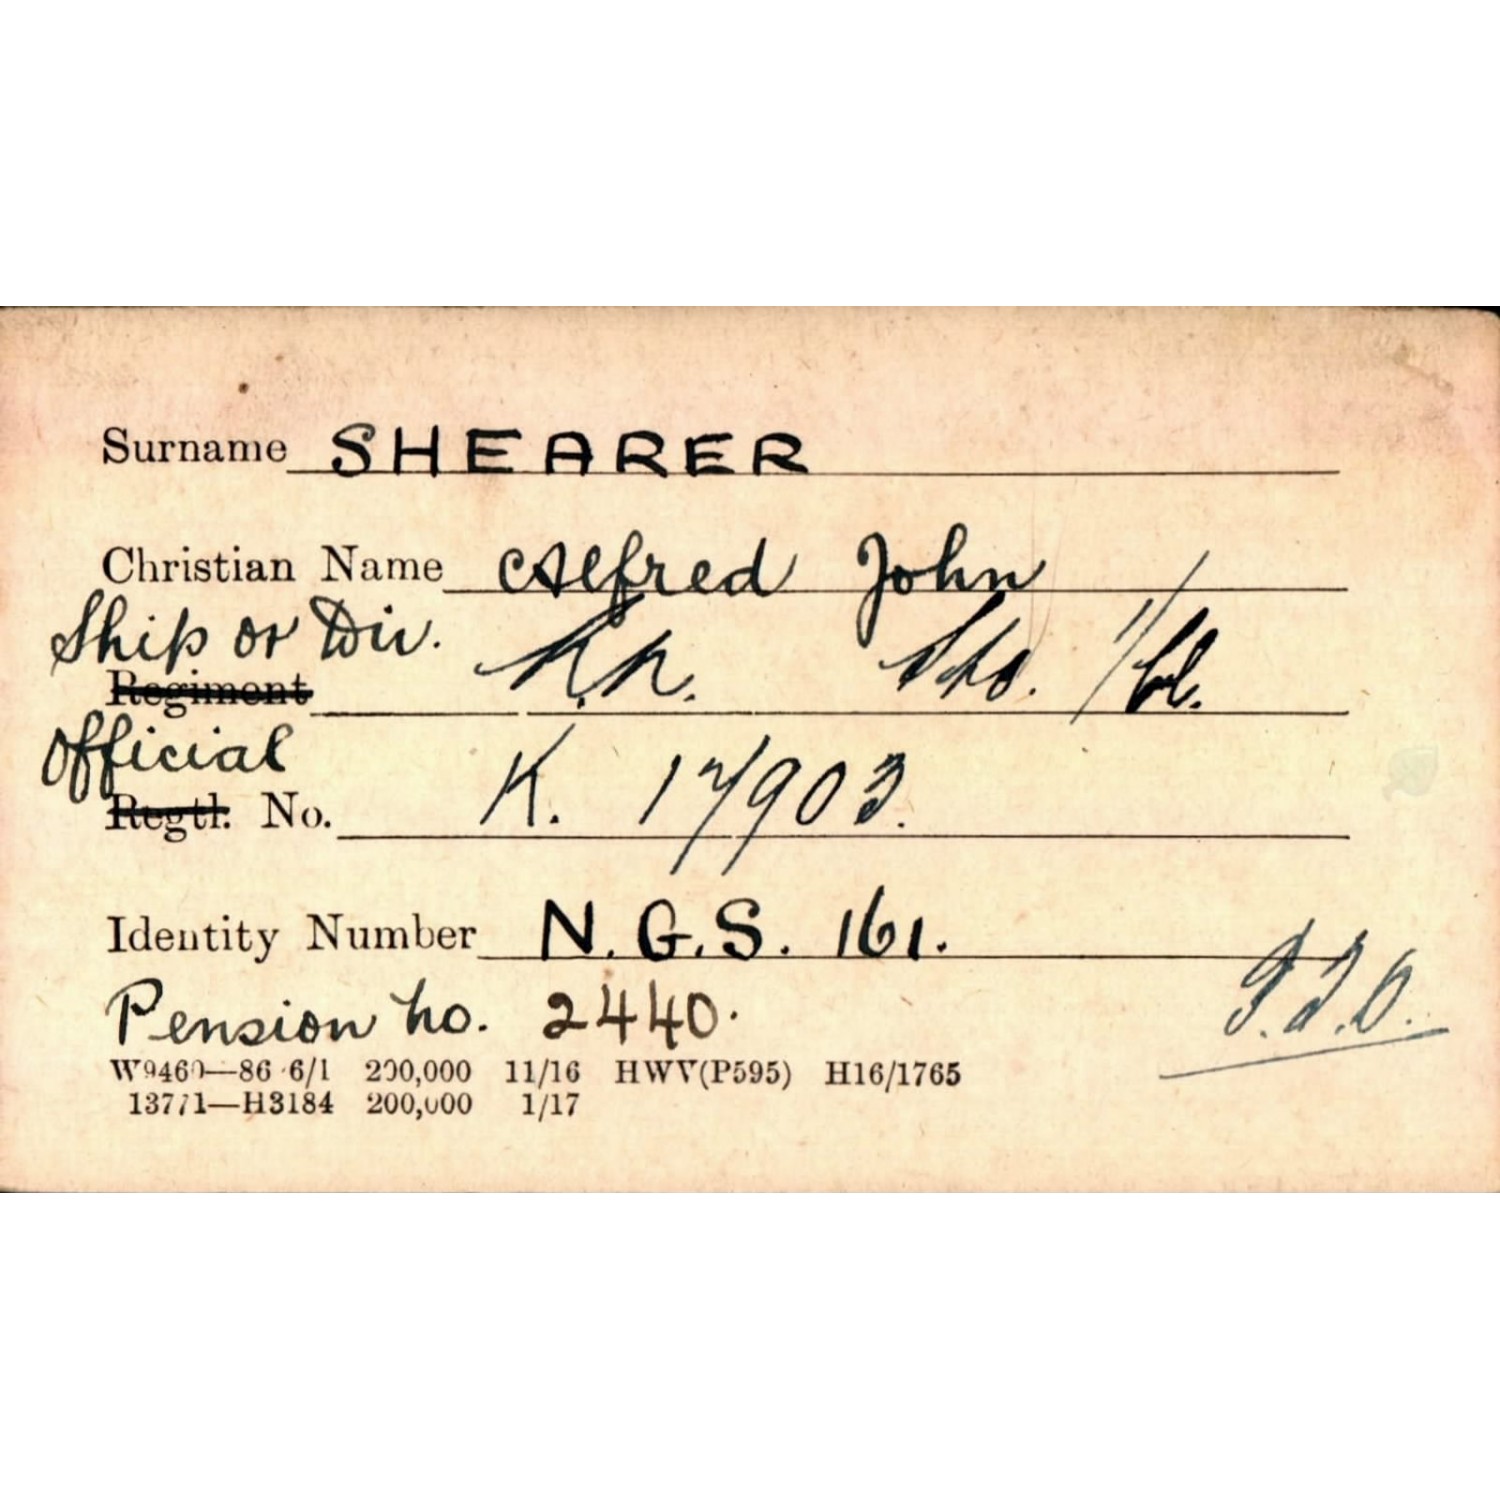 Surname SHEARER
Christian Name Alfred John
Ship or Div.
Regiment R.N. Sto. 1/Cl.
Official
Regtl. No. K. 17903.
Identity Number N.G.S. 161.
Pension No. 2440.
W9460—86 6/1 200,000 11/16 HWV(P595) H16/1765
13771—H3184 200,000 1/17